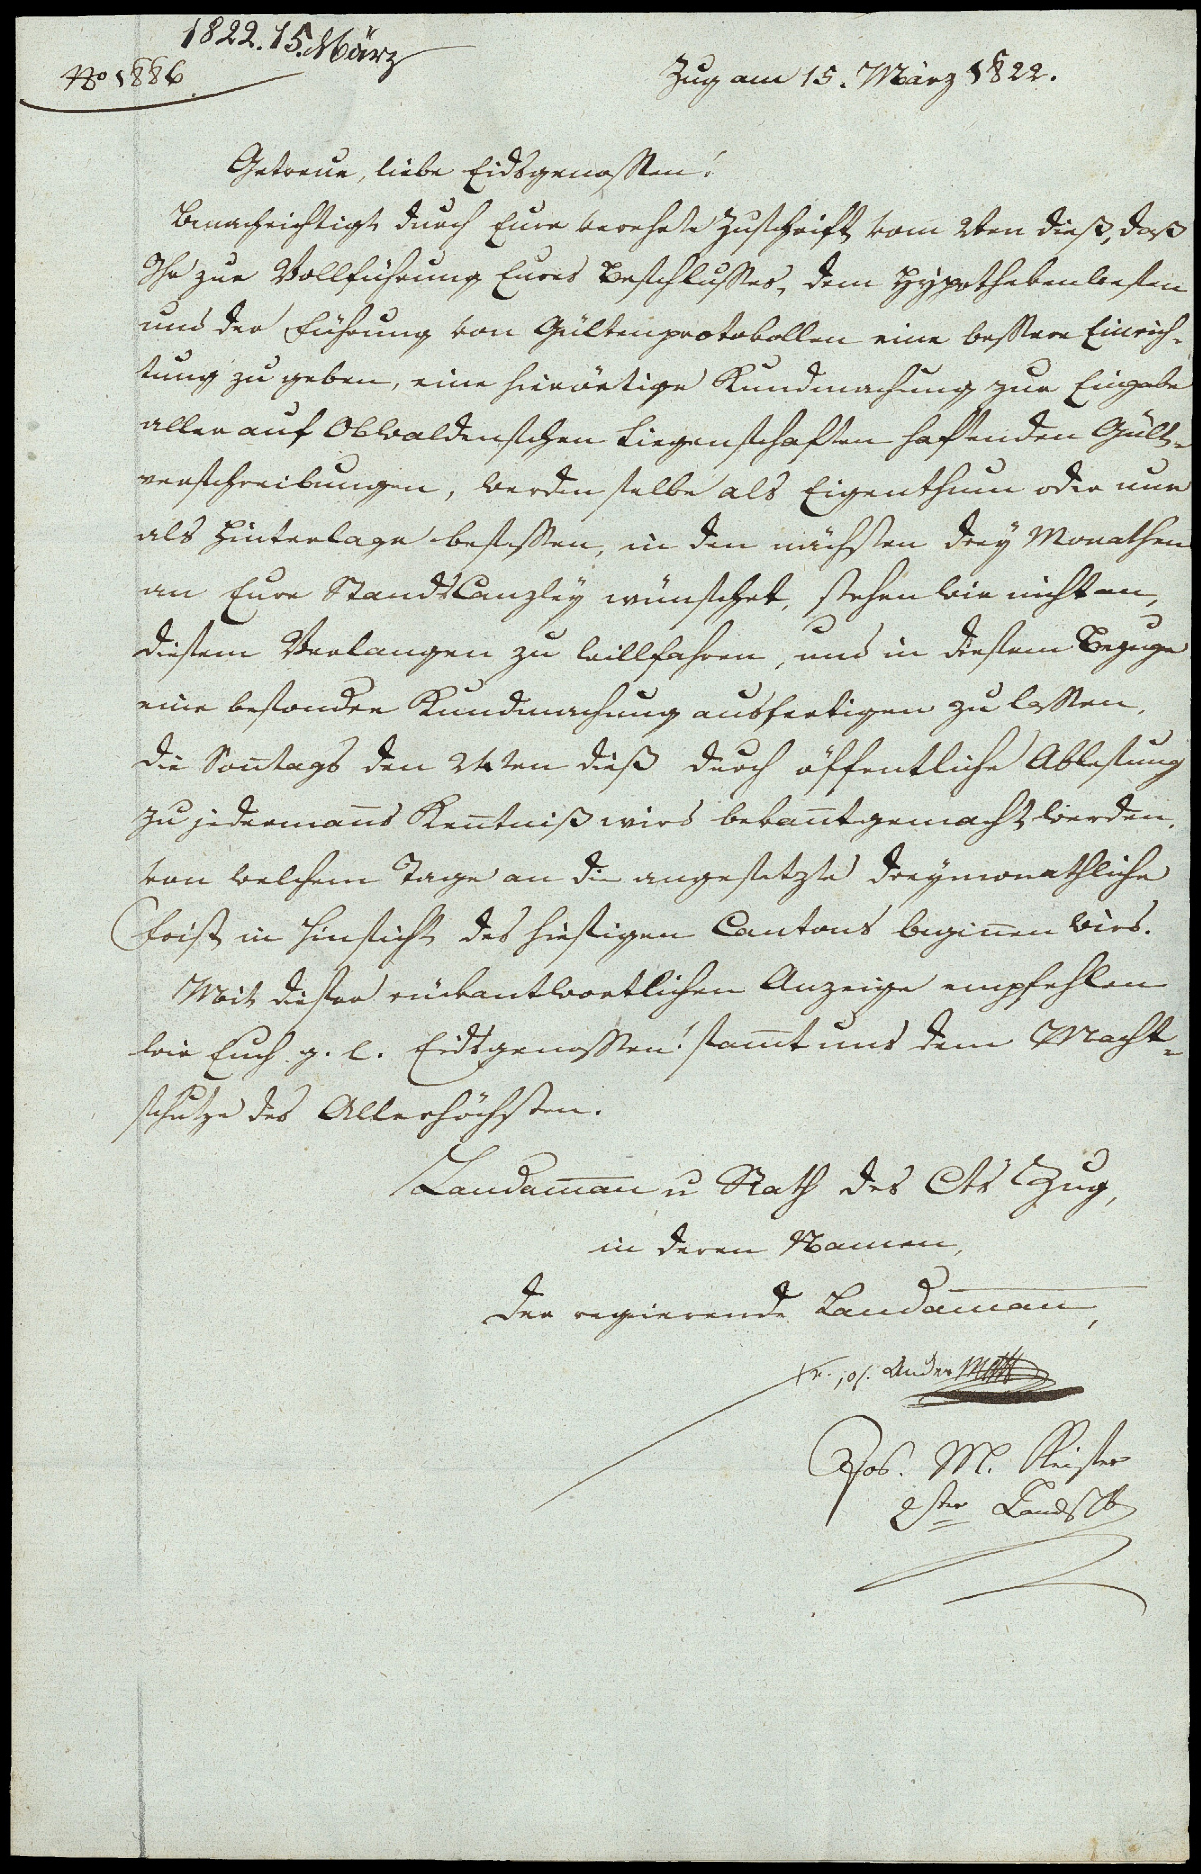 1822. 15. März
No 1886
Zug am 15. März 1822.
Getreue, liebe Eidsgenossen!
Benachrichtigt durch Eure verehrte Zuschrift vom 2ten dieß, daß
Ihr zur Vollführung Eures Beschlusses, dem Hypothekenwesen
und der Führung von Gültenprotokollen eine bessere Einrich-
tung zu geben, eine hierörtige Kundmachung zur Eingabe
aller auf Obwaldenschen Liegenschaften haftenden Gült-
verschreibungen, werden selbe als Eigenthum oder nur
als Hinterlage besessen, in den nächsten drey Monathen
an Eure StandsCanzley wünschet, stehen wir nicht an,
diesem Verlangen zu willfahren, und in diesem Bezuge
eine besondere Kundmachung ausfertigen zu lassen,
die Soñtags den 24ten dieß durch öffentliche Ablesung
zu jedermañs Keñtniß wird bekañt gemacht werden,
von welchem Tage an die angesetzte dreymonathliche
Frist in Hinsicht des hiesigen Cantons begiñen wird.
Mit dieser rückantwortlichen Anzeige empfehlen
wir Euch g. l. Eidsgenossen! sam̃t uns dem Macht-
schutze des Allerhöchsten.
Landam̃an u Rath des Cts Zug,
in deren Namen,
der regierende Landam̃an,
Fr. Jos. Andermatt
Jos. M.
2ter Landsch